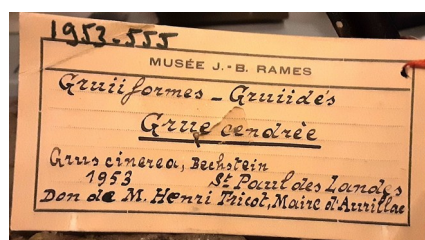 1953-555
MUSÉE J.-B. RAMES
Gruiiformes - Gruiidés
Grue cendrée
Grus cinerea, Bechstein
1953 St Paul des Landes
Don de M. Henri Tricot, Maire d'Aurillac